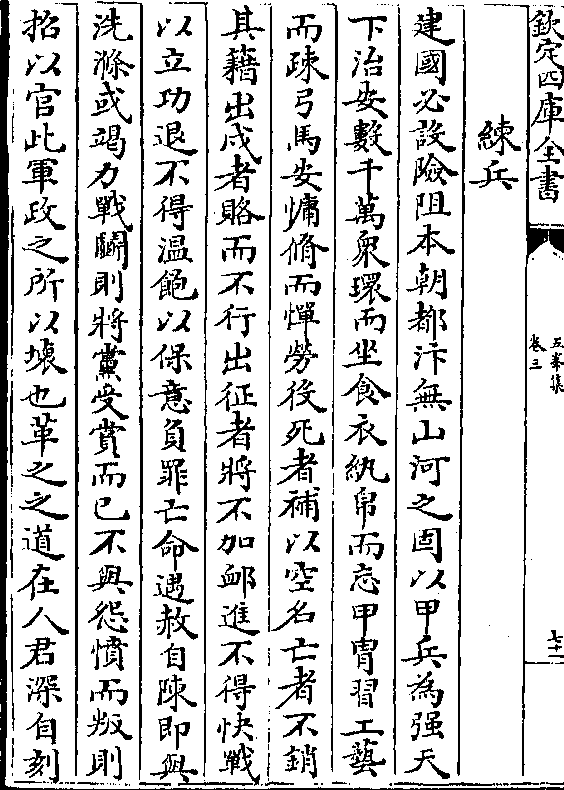 欽定四庫全書
五峯集
卷三
七十一
練兵
建國必設險阻本朝都汴無山河之固以甲兵為强天
下治安數千萬衆環而坐食衣紈帛而忘甲胄習工藝
而疎弓馬安慵脩而憚勞役死者補以空名亡者不銷
其籍出戍者賂而不行出征者將不加䘏進不得快戰
以立功退不得温飽以保意負罪亡命遇赦自陳即與
洗滌或竭力戰鬭則將黨受賞而已不與怨憤而叛則
招以官此軍政之所以壞也革之之道在人君深自刻